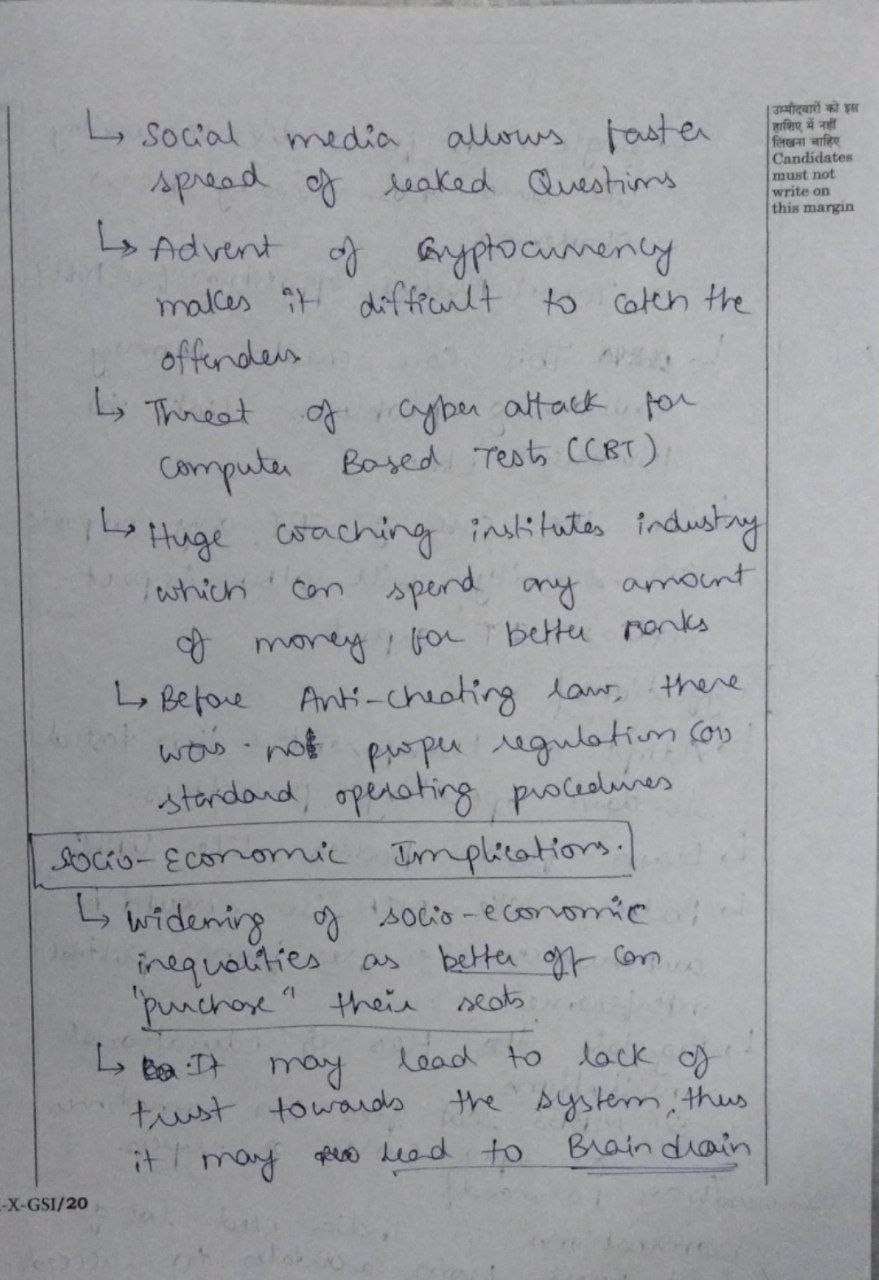 ↳ Social media allows faster
spread of leaked Questions
↳ Advent of Cryptocurrency
makes it difficult to catch the
offenders
↳ Threat of cyber attack for
Computer Based Tests (CBT)
↳ Huge coaching institutes industry
which can spend any amount
of money, for better ranks
↳ Before Anti-cheating law, there
was not proper regulation (or)
standard operating procedures
Socio-Economic Implications.
↳ Widening of socio-economic
inequalities as better off can
"purchase" their seats
↳ It may lead to lack of
trust towards the system, thus
it may lead to Brain drain
उम्मीदवारों को इस
हाशिए में नहीं
लिखना चाहिए
Candidates
must not
write on
this margin
-X-GSI/20